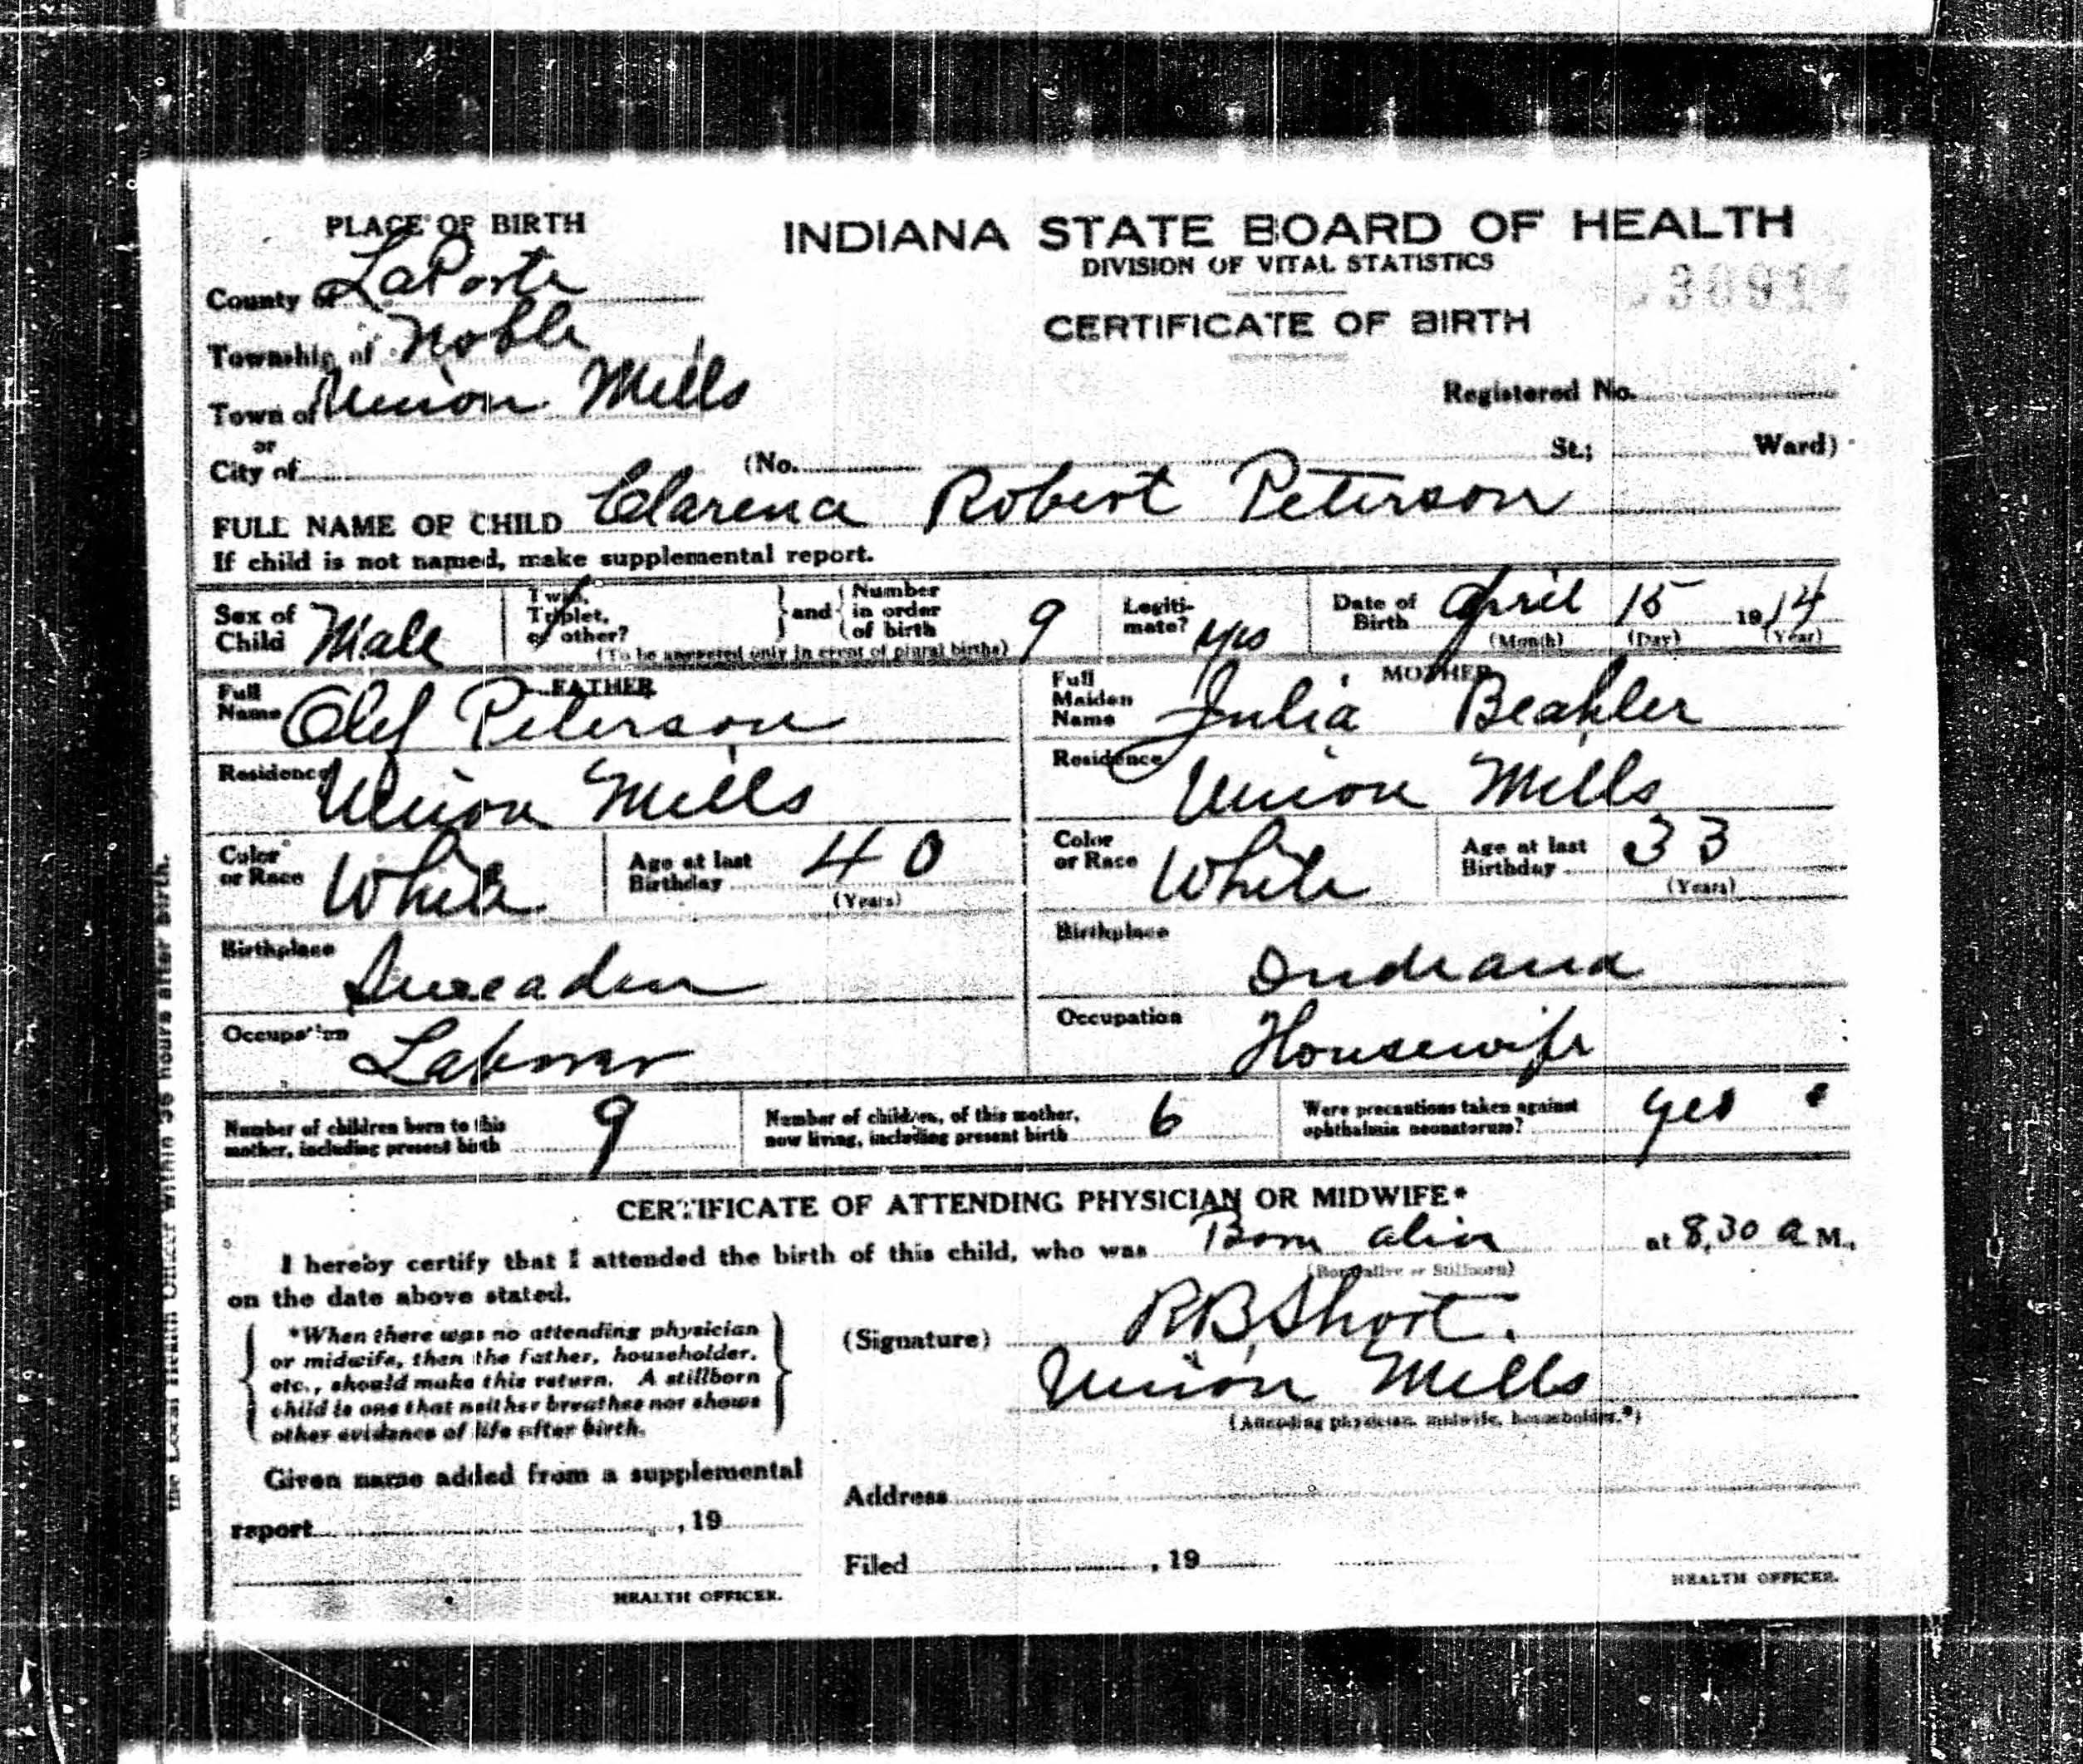 PLACE OF BIRTH
INDIANA STATE BOARD OF HEALTH
DIVISION OF VITAL STATISTICS
County of LaPorte
CERTIFICATE OF BIRTH
Township of Noble
Town of Union Mills
Registered No.
or
City of (No. St.; Ward)
FULL NAME OF CHILD Clarence Robert Peterson
If child is not named, make supplemental report.
Sex of Child Male
Twin, Triplet, or other?
and Number in order of birth 9
(To be answered only in event of plural births)
Legitimate? Yes
Date of Birth April 15 1914
(Month) (Day) (Year)
FATHER
Full Name Olef Peterson
MOTHER
Full Maiden Name Julia Beahler
Residence Union Mills
Residence Union Mills
Color or Race White
Age at last Birthday 40
(Years)
Color or Race White
Age at last Birthday 33
(Years)
Birthplace
Birthplace Indiana
Occupation Laborer
Occupation Housewife
Number of children born to this mother, including present birth 9
Number of children, of this mother, now living, including present birth 6
Were precautions taken against ophthalmia neonatorum? yes
CERTIFICATE OF ATTENDING PHYSICIAN OR MIDWIFE*
I hereby certify that I attended the birth of this child, who was Born alive at 8,30 a M.,
(Born alive or Stillborn)
on the date above stated.
*When there was no attending physician
or midwife, then the father, householder,
etc., should make this return. A stillborn
child is one that neither breathes nor shows
other evidence of life after birth.
(Signature) R B Short.
Union Mills
(Attending physician, midwife, householder.*)
Given name added from a supplemental
report , 19
Address
Filed , 19
HEALTH OFFICER.
HEALTH OFFICER.